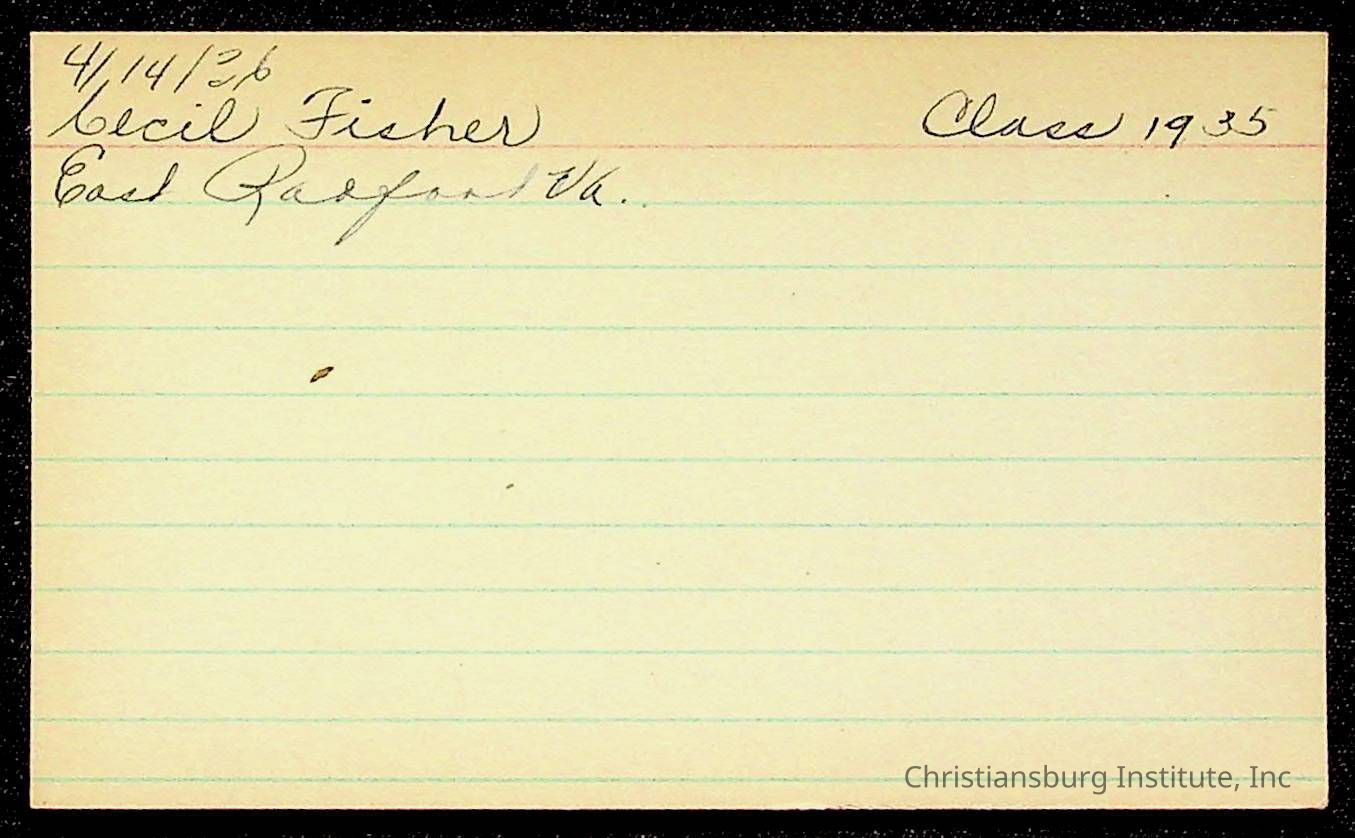 4/14/36
Cecil Fisher Class 1935
East Radford Va.
Christiansburg Institute, Inc